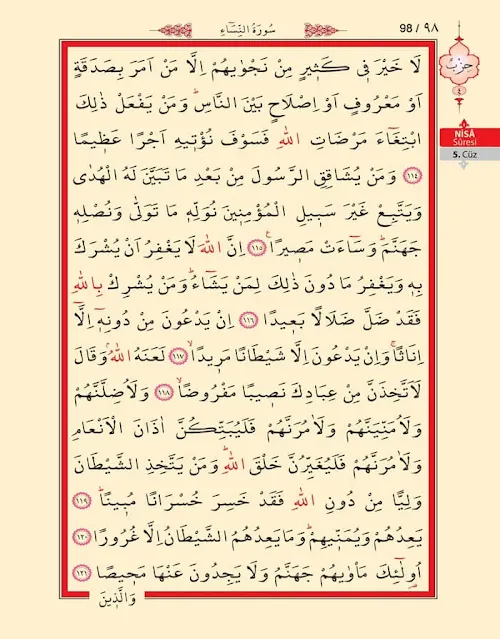 98 / ٩٨
سُورَةُ النِّسَاءِ
حزب
٤
NİSÂ
Sûresi
5. Cüz
لَا خَيْرَ ف۪ي كَث۪يرٍ مِنْ نَجْوٰيهُمْ اِلَّا مَنْ اَمَرَ بِصَدَقَةٍ
اَوْ مَعْرُوفٍ اَوْ اِصْلَاحٍ بَيْنَ النَّاسِۜ وَمَنْ يَفْعَلْ ذٰلِكَ
ابْتِغَٓاءَ مَرْضَاتِ اللّٰهِ فَسَوْفَ نُؤْت۪يهِ اَجْرًا عَظ۪يمًا
﴿١١٤﴾ وَمَنْ يُشَاقِقِ الرَّسُولَ مِنْ بَعْدِ مَا تَبَيَّنَ لَهُ الْهُدٰى
وَيَتَّبِعْ غَيْرَ سَب۪يلِ الْمُؤْمِن۪ينَ نُوَلِّه۪ مَا تَوَلّٰى وَنُصْلِه۪
جَهَنَّمَۜ وَسَٓاءَتْ مَص۪يرًا۟ ﴿١١٥﴾ اِنَّ اللّٰهَ لَا يَغْفِرُ اَنْ يُشْرَكَ
بِه۪ وَيَغْفِرُ مَا دُونَ ذٰلِكَ لِمَنْ يَشَٓاءُۜ وَمَنْ يُشْرِكْ بِاللّٰهِ
فَقَدْ ضَلَّ ضَلَالًا بَع۪يدًا ﴿١١٦﴾ اِنْ يَدْعُونَ مِنْ دُونِه۪ٓ اِلَّٓا
اِنَاثًاۚ وَاِنْ يَدْعُونَ اِلَّا شَيْطَانًا مَر۪يدًاۙ ﴿١١٧﴾ لَعَنَهُ اللّٰهُۢ وَقَالَ
لَاَتَّخِذَنَّ مِنْ عِبَادِكَ نَص۪يبًا مَفْرُوضًاۙ ﴿١١٨﴾ وَلَاُضِلَّنَّهُمْ
وَلَاُمَنِّيَنَّهُمْ وَلَاٰمُرَنَّهُمْ فَلَيُبَتِّكُنَّ اٰذَانَ الْاَنْعَامِ
وَلَاٰمُرَنَّهُمْ فَلَيُغَيِّرُنَّ خَلْقَ اللّٰهِۜ وَمَنْ يَتَّخِذِ الشَّيْطَانَ
وَلِيًّا مِنْ دُونِ اللّٰهِ فَقَدْ خَسِرَ خُسْرَانًا مُب۪ينًاۜ ﴿١١٩﴾
يَعِدُهُمْ وَيُمَنّ۪يهِمْۜ وَمَا يَعِدُهُمُ الشَّيْطَانُ اِلَّا غُرُورًا ﴿١٢٠﴾
اُو۬لٰٓئِكَ مَأْوٰيهُمْ جَهَنَّمُ وَلَا يَجِدُونَ عَنْهَا مَح۪يصًا ﴿١٢١﴾
وَالَّذ۪ينَ